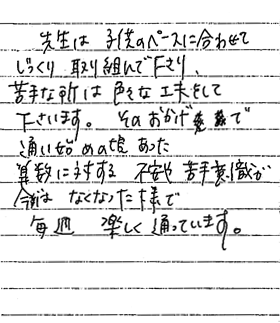 先生は 子供のペースに合わせて
じっくり 取り組んで下さり、
苦手な所は 色々な工夫をして
下さいます。そのおかげで
通い始めの頃 あった
算数に対する 不安や 苦手意識が
今は なくなった様で
毎週 楽しく 通っています。